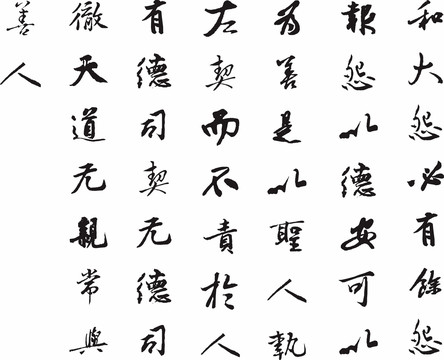 和大怨必有餘怨
報怨以德安可以
為善是以聖人執
左契而不責於人
有德司契无德司
徹天道无親常與
善人